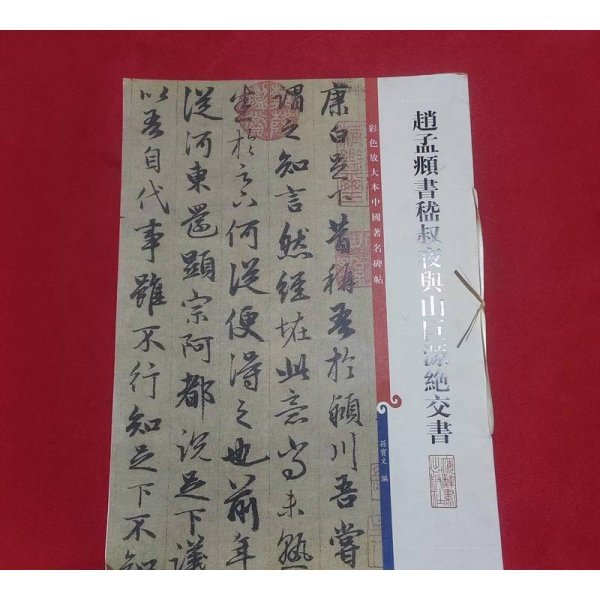 趙孟頫書嵇叔夜與山巨源絶交書
彩色放大本中國著名碑帖
孫寶文 編
康白足下昔稱吾於潁川吾嘗
謂之知言然經怪此意尚未熟
悉於之何從便得之也前年
從河東還顯宗阿都説足下議
以吾自代事雖不行知足下不知